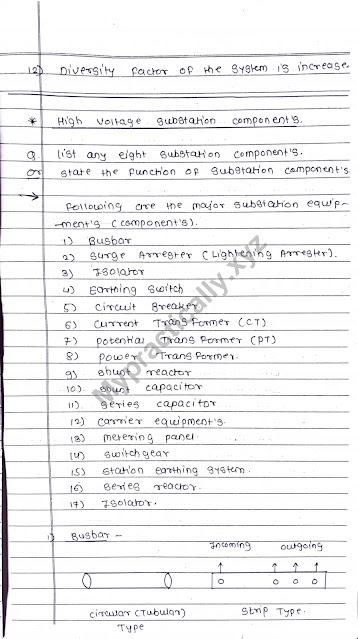 12) Diversity factor of the system is increase
* High voltage substation component's.
Q. list any eight substation component's.
or state the function of substation component's
→ Following are the major substation equip-
-ment's (component's).
1) Busbar
2) Surge Arrester (Lightening Arrester).
3) Isolator
4) Earthing switch
5) circuit Breaker
6) current Transformer (CT)
7) potential Transformer (PT)
8) power Transformer.
9) shunt reactor
10) shunt capacitor
11) series capacitor
12) carrier equipment's
13) metering panel.
14) switchgear
15) station earthing system.
16) series reactor.
17) Isolator.
1) Busbar -
Incoming outgoing
circular (Tubular) strip Type.
Type
Mypractically.xyz